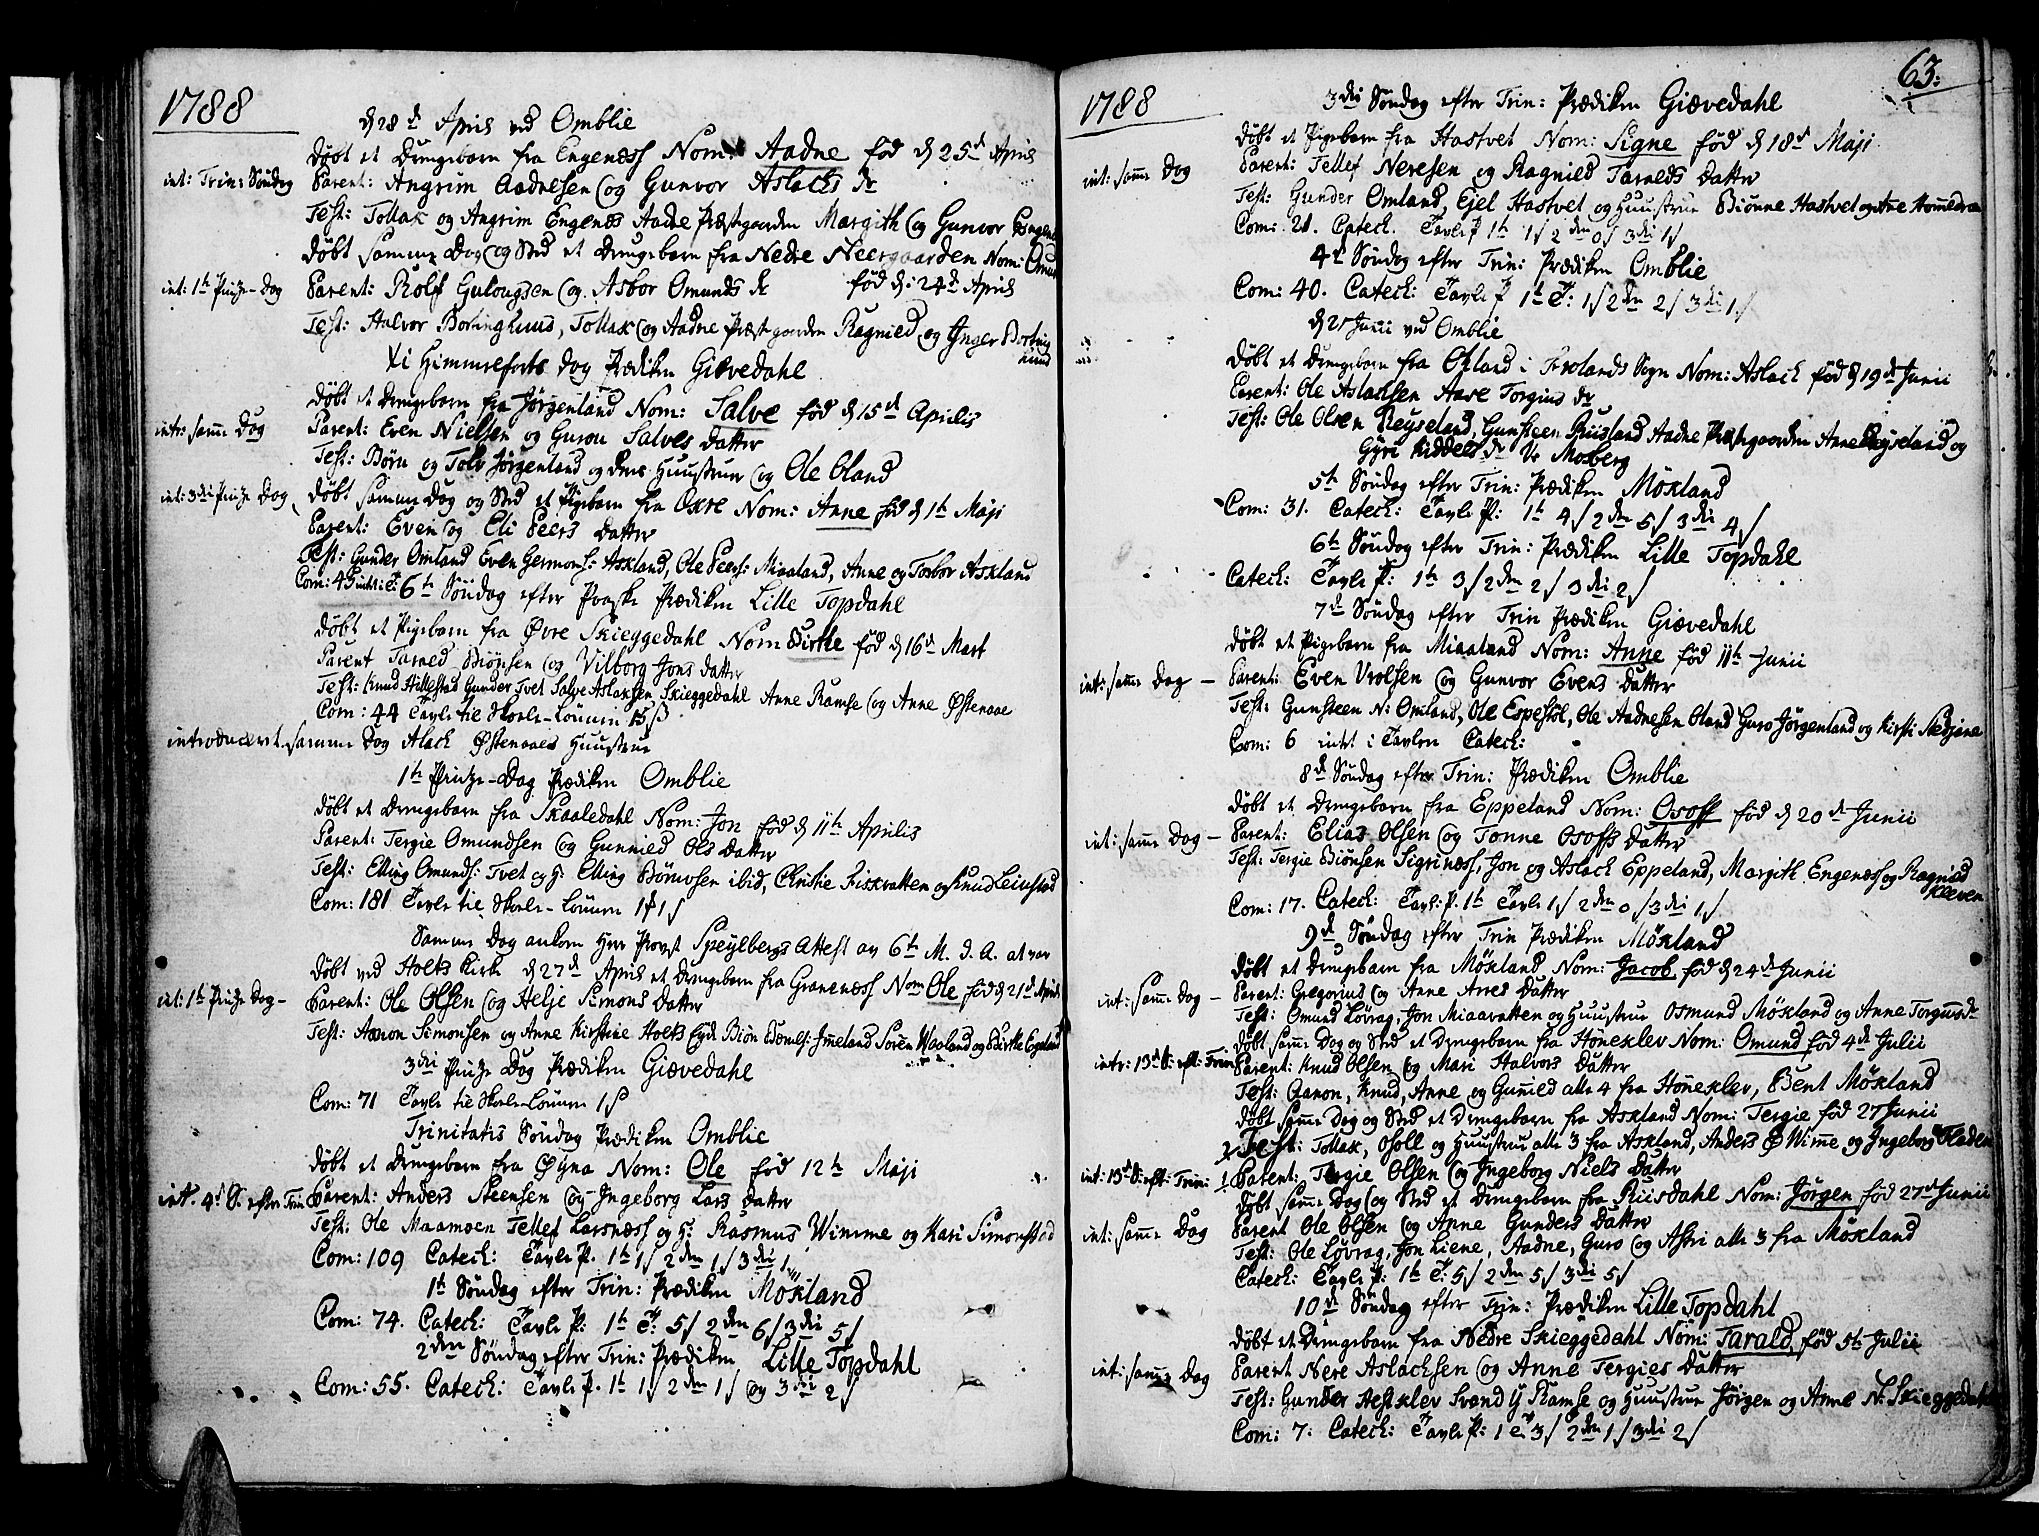 1788
d 28d April ved Omblie
Døbt et Drengebarn fra Engenæss Nom: Aadne fød d 25d April
int: Trin: Søndag Parent: Angrim Aadnesen og Gunvor Aslachs dr
Test: Tollak og Angrim Engenes Aadne Præstgaarden Margith og Gunvor Engenes
Døbt samme Dag og Sted et Drengebarn fra Nedre Neergaarden Nom: Omun
int: 1te Pintze-Dag Parent: Rolf Gulougsen og Asbor Omunds dr fød d: 24d April
Test: Halvor Borlinghuus, Tollak og Aadne Præstgaarden Ragnild og Inger
Xti Himmelfarts Dag Prædiken Giævedahl
Døbt et Drengebarn fra Jørgenland Nom: Salve fød d 15d Aprilis
intr: samme Dag Parent: Even Nielsen og Gurou Salves datter
Test: Børn og Tolv Jørgenland og dens Huustrue og Ole Oland
int: 3die Pintze Dag Døbt samme Dag og Sted et Pigebarn fra Oxre Nom: Anne fød d 1te Maji
Parent: Even og Eli Peers datter
Test: Gunder Omland Even Germons: Askland, Ole Peers: Miaaland, Anne og Torbor Askland
Com: 45 6te Søndag efter Paaske Prædiken Lille Topdahl
Døbt et Pigebarn fra Øvre Skieggedahl Nom Birthe fød d 16d Mart
Parent Tarned Biønsen og Vilborg Jons datter
Test: Knud Hillestad Gunder Tvet Salve Aslaksen, Skieggedahl Anne Ramse og Anne Østenaae
Com: 44 Tavle til Skole-Lønnen 15 ß
introduceret samme Dag Alach Østenaaes Huustrue
1te Pintze-Dag Prædiken Omblie
Døbt et Drengebarn fra Skaaledahl Nom: Jon fød d 11te Aprilis
Parent: Tergie Omundsen og Gunnied Ols datter
Test: Elling Omunds: Tvet og H: Elling Børuvsen ibid, Christie Fiskvatten og Knud Leinstad
Com: 181 Tavle til Skole-Lønnen
Samme Dag ankom Herr Provst Speylbergs Attest av 6te M. d. A. at var
døbt ved Holts Kirke d 27d April et Drengebarn fra Granenæss Nom Ole fød d 21d April
int: 1te Pintze Dag- Parent: Ole Olsen og Helje Simons datter
Test: Aaron Simonsen og Anne Kirstine Holts Eyd Biøn Edvenls: Immeland Søren Waaland og Birthe Egeland
3die Pintze Dag Prædiken Giævedahl
Com: 71 Tavle til Skole-Lønnen 1 ß
Trinitatis Søndag Prædiken Omblie
Døbt et Drengebarn fra Øyna Nom: Ole fød 12te Maji
int. 4d S: efter Trin Parent: Anders Steensen og Ingeborg Lars datter
Test: Ole Maamoen Tellef Larsnæss og H: Rasmus Wimme og Kari Simonstad
Com: 109 Catech: Tavle P. 1te 1/ 2den 1/ 3die 1/
1te Søndag efter Trin: Prædiken Møkland
Com: 74. Catech: Tavle P: 1te T: 5/ 2den 6/ 3die 5/
2den Søndag efter Trin: Prædiken Lille Topdahl
Com: 55. Catech: Tavle P. 1te 1/ 2den 1/ og 3die 2/
1788
63:
3die Søndag efter Trin: Prædiken Giævedahl
Døbt et Pigebarn fra Hastvet Nom: Signe fød d 18d Maji
int: samme Dag Parent: Tellef Neresen og Ragnied Taralds datter
Test: Gunder Omland, Ejel Hastvet og Huustrue Biønne Hastvet og Anne
Com: 21. Catech. Tavle P 1te 1/ 2den 0/ 3die 1/
4de Søndag efter Trin: Prædiken Omblie
Com: 40. Catech: Tavle P 1te T: 1/ 2den 2/ 3die 1/
d 25 Junii ved Omblie
Døbt et Drengebarn fra Oxland i Frolands Sogn Nom: Aslach fød d 19d Junii
Parent: Ole Aslachsen Aase Torgius dr
Test: Ole Olsen Reyseland, Gunsteen Riisland Aadne Præstgaarden Anne Reyseland og
Gyri Kiddels dr V Mosberg
5te Søndag efter Trin: Prædiken Møkland
Com: 31. Catech: Tavle P: 1te 4/ 2den 5/ 3die 4/
6te Søndag efter Trin: Prædiken Lille Topdahl
Catech: Tavle P: 1te 3/ 2den 2/ 3die 2/
7de Søndag efter Trin Prædiken Giævedahl
Døbt et Pigebarn fra Miaaland Nom: Anne fød 11te Junii
int: samme Dag - Parent: Even Vrolsen og Gunvor Evens datter
Test: Gunsteen N: Omland, Ole Espestøl, Ole Aadnesen Oland Guro Jørgenland og Kirsti
Com: 6 intet i Tavlen Catech:
8de Søndag efter Trin: Prædiken Omblie
Døbt et Drengebarn fra Eppeland Nom: Osoff fød d 20d Junii
int: samme Dag - Parent: Elias Olsen og Tonne Osoffs datter
Test: Tergie Biønsen Sigrinæss, Jon og Aslach Eppeland, Margith Engenæss og Ragnild
Kleeven
Com: 17. Catech: Tavle: P. 1te Tavle 1/ 2den 0/ 3die 1/
9de Søndag efter Trin Prædiken Møkland
Døbt et Drengebarn fra Møkland Nom: Jacob fød d 24d Junii
int: samme Dag - Parent: Gregorius og Anne Arres datter
Test: Omund Løvrag, Jon Miaavatten og Huustrue Osmund Møkland og Anne Torgius dr
Døbt samme Dag og Sted et Drengebarn fra Hønekløv Nom: Omund fød 4de Julii
intr: 13d S: eft: Trin Parent: Knud Olsen og Mari Halvors datter
Test: Aanon, Knud, Anne og Gunnied alle 4 fra Hønekløv, Bent Møkland
Døbt samme Dag og Sted et Drengebarn fra Askland Nom: Tergie fød 27 Junii
2 Test: Tollak, Osoll og Huustrue alle 3 fra Askland, Anders Ø Wimme og Ingeborg Fladen
int: 13d S: eft: Trin: 1 Parent: Tergie Olsen og Ingeborg Niels datter
Døbt samme Dag og Sted et Drengebarn fra Riisdahl Nom: Jørgen fød 27d Junii
int: samme Dag Parent Ole Olsen og Anne Gunders datter
Test: Ole Løvrag, Jon Liene, Aadne, Guro og Astri alle 3 fra Møkland
Catech: Tavle P: 1te T: 5/ 2den 5/ 3die 5/
10de Søndag efter Trin: Prædiken Lille Topdahl
Døbt et Drengebarn fra Nedre Skieggedahl Nom: Tarald, fød 5te Julii
int: samme Dag Parent Nere Aslachsen og Anne Tergies datter
Test: Gunder Hestkløv Svend Y Ramse og Huustrue Jørgen og Anne N: Skieggedahl
Com: 7. Catech: Tavle P: 1 T 3/ 2den 1/ 3die 2/